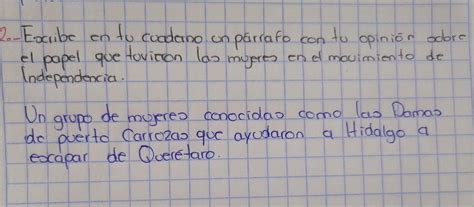 2.- Escribe en tu cuaderno un párrafo con tu opinión sobre
el papel que tuvieron las mujeres en el movimiento de
Independencia.
Un grupo de mujeres conocidas como las Damas
de puerto Carrozas que ayudaron a Hidalgo a
escapar de Querétaro.